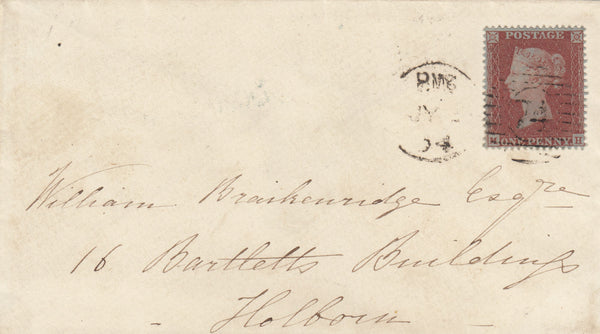 POSTAGE
ONE PENNY H
PM 6
JY
54
William Braikenridge Esqre
16 Bartletts Buildings
Holborn